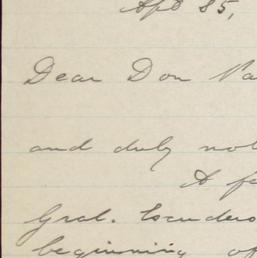 Apl 25,
Dear Don
and duly
A
Gral. Escudero
beginning of